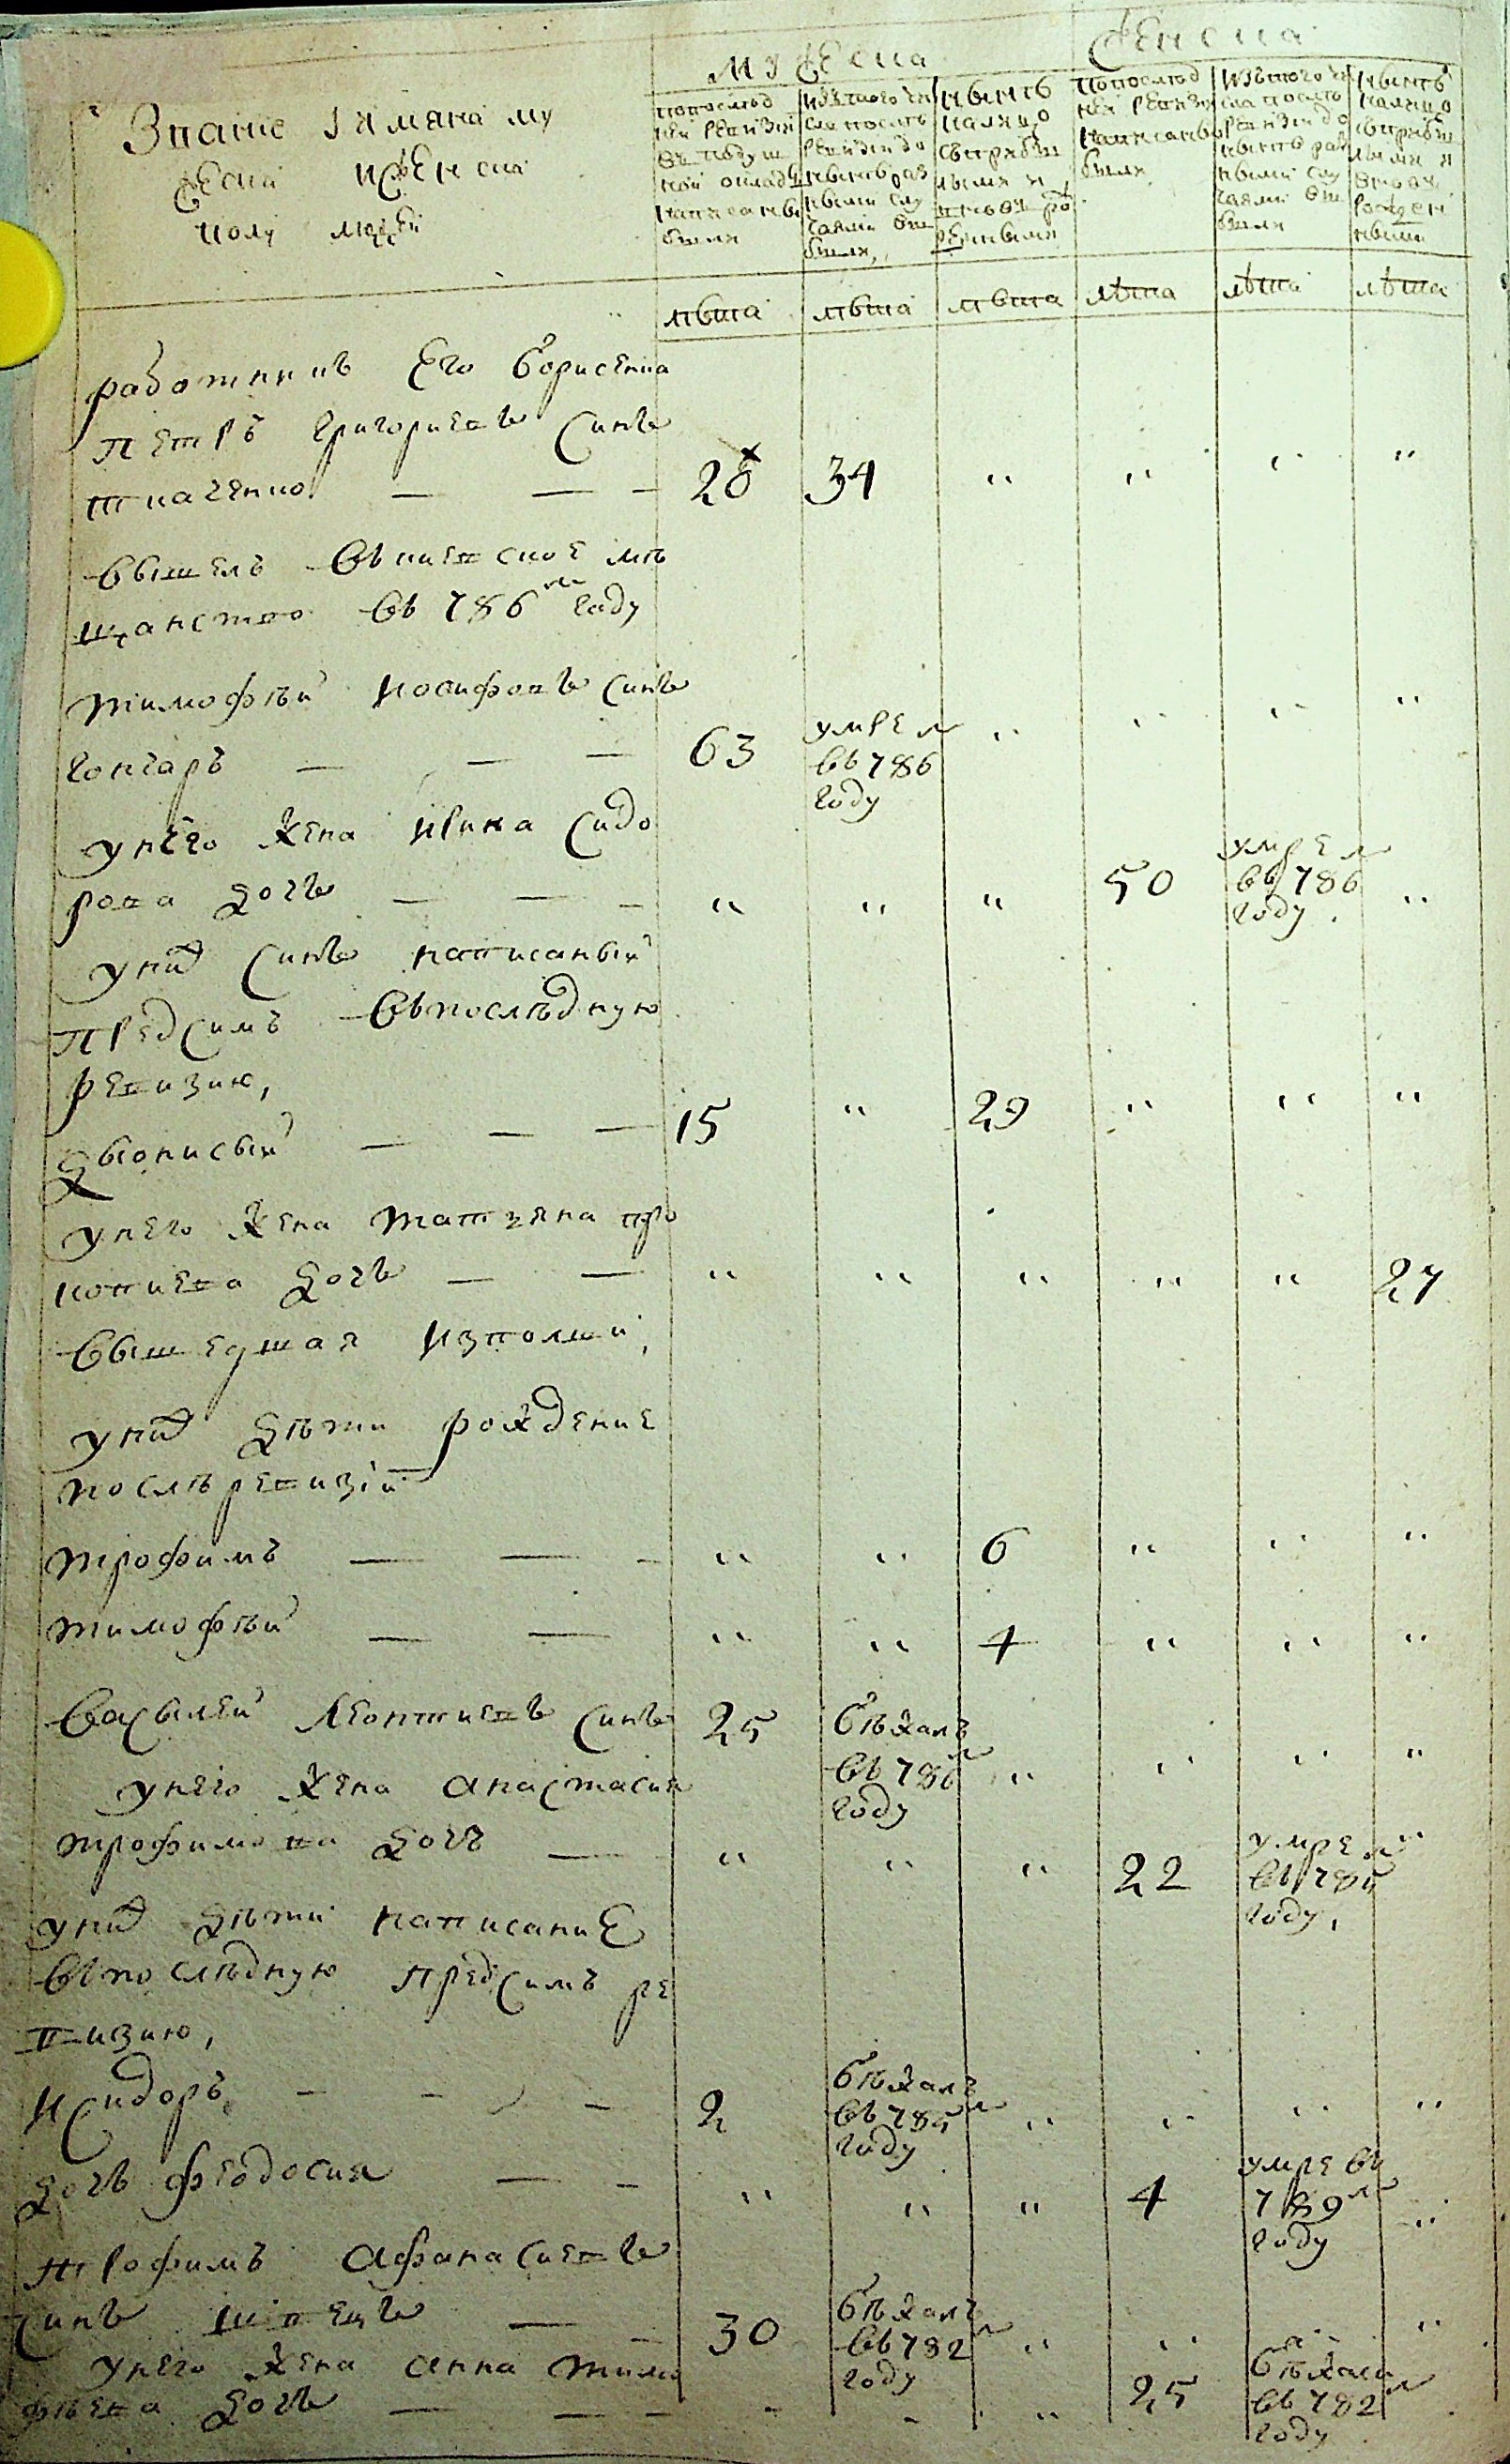 мужеска
женска
Звание І имяна му
жеска и женска
полу людей
попослед
ней ревизии
въ подуш
ной окладъ
написаныи
были
изътого чи
сла послѣ
ревизии до
нынѣ раз
ными слу
чаями вы
были,
нынѣ
налицо
съприбы
лыми и
вновь ро
жденными
попослед
ней ревизии
написаны
были
изътого чи
сла послѣ
ревизии до
нынѣ раз
ными слу
чаями вы
были
нынѣ
налицо
съприбы
лыми и
вновь
рожден
ными
лѣта лѣта лѣта лѣта лѣта лѣта
работникъ Его борисенка
петръ григориевъ синъ
ткаченко — — — 28 34 " " " "
вышелъ въкиевское мѣ
щанство въ 786м году
тимофѣй иосифовъ синъ
гончаръ — — — 63 умре въ 786 году " " " "
унего жена ирина сидо
рова дочь — — — " " " 50 умре въ 786 году "
унихъ синъ написаный
предсимъ въпослѣдную
ревизию,
дыонисый — — — 15 " 29 " " "
унего жена татияна про
копиева дочь — — " " " " " 27
вышедшая изполши,
унихъ дѣти рождение
послѣ ревизіи
трофимъ — — — " " 6 " " "
тимофѣй — — " " 4 " " "
василей леонтиевъ синъ 25 бѣжалъ въ 786м году " " " "
унего жена анастасия
трофимова дочь — " " " 22 умре въ 785 году, "
унихъ дѣти написание
въпослѣдную предсимъ ре
визию,
исидоръ, — — — 2 бѣжалъ въ 785м году " " " "
дочь феодосия — — " " " 4 умре въ 789м году "
трофимъ афанасиевъ
синъ швецъ — — 30 бѣжалъ въ 782м году " " " "
унего жена анна тимо
фѣева дочь — — — " " " 25 бѣжала въ 782м году